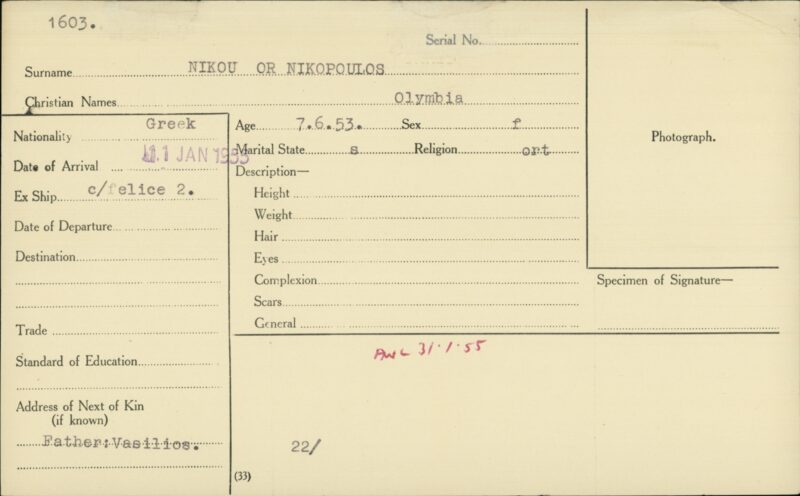 1603.
Serial No.
Surname NIKOU OR NIKOPOULOS
Christian Names Olymbia
Nationality Greek
Date of Arrival 11 JAN 1955
Ex Ship c/felice 2.
Date of Departure
Destination
Trade
Standard of Education
Address of Next of Kin
(if known)
Father:Vasilios.
Age 7.6.53. Sex f
Marital State s Religion ort
Description—
Height
Weight
Hair
Eyes
Complexion
Scars
General
Photograph.
Specimen of Signature—
AWL 31.1.55
22/
(33)